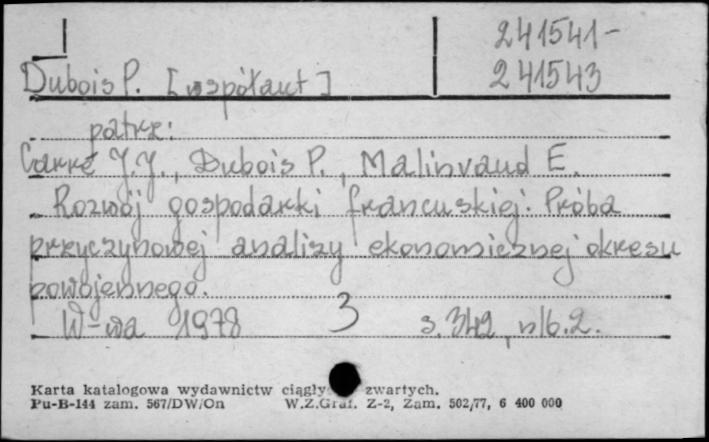 241541-
Dubois P. [współaut] 241543
patrz:
Carré J.J., Dubois P., Malinvaud E.
Rozwój gospodarki francuskiej. Próba
przyczynowej analizy ekonomicznej okresu
powojennego.
W-wa 1978 3 s. 342, nlb. 2.
Karta katalogowa wydawnictw ciągły zwartych.
Pu-B-144 zam. 567/DW/On W.Z.Graf. Z-2, Zam. 502/77, 6 400 000